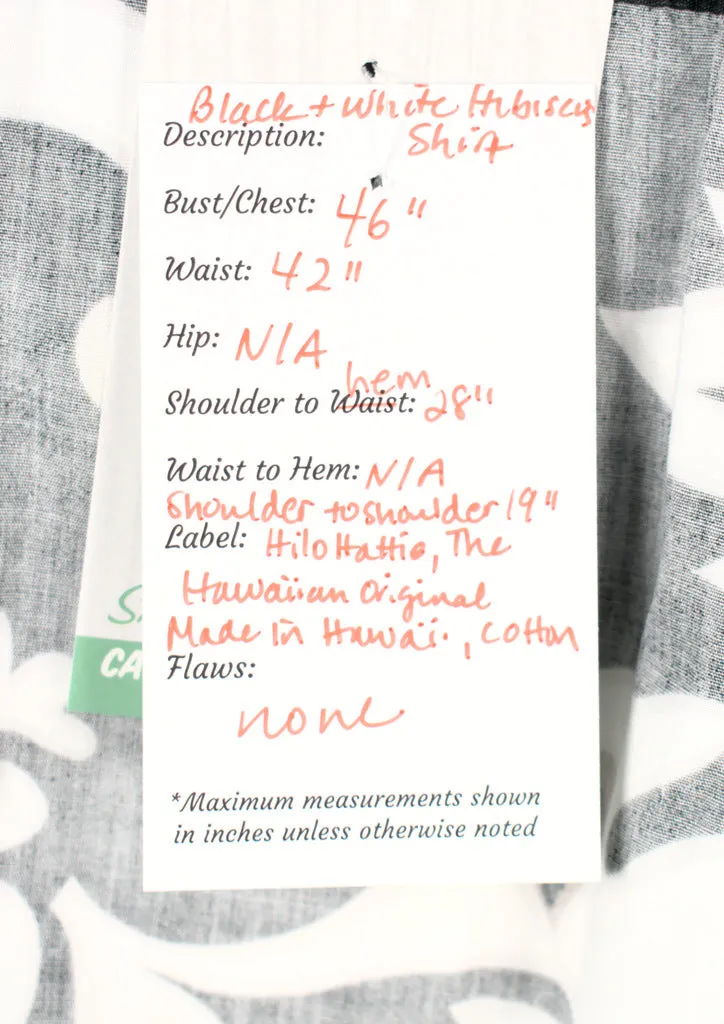 Black + White Hibiscus
Description: Shirt
Bust/Chest: 46"
Waist: 42"
Hip: N/A
hem
Shoulder to Waist: 28"
Waist to Hem: N/A
Shoulder to shoulder 19"
Label: Hilo Hattie, The
Hawaiian Original
Made in Hawai'i, cotton
Flaws:
none
*Maximum measurements shown
in inches unless otherwise noted
CA